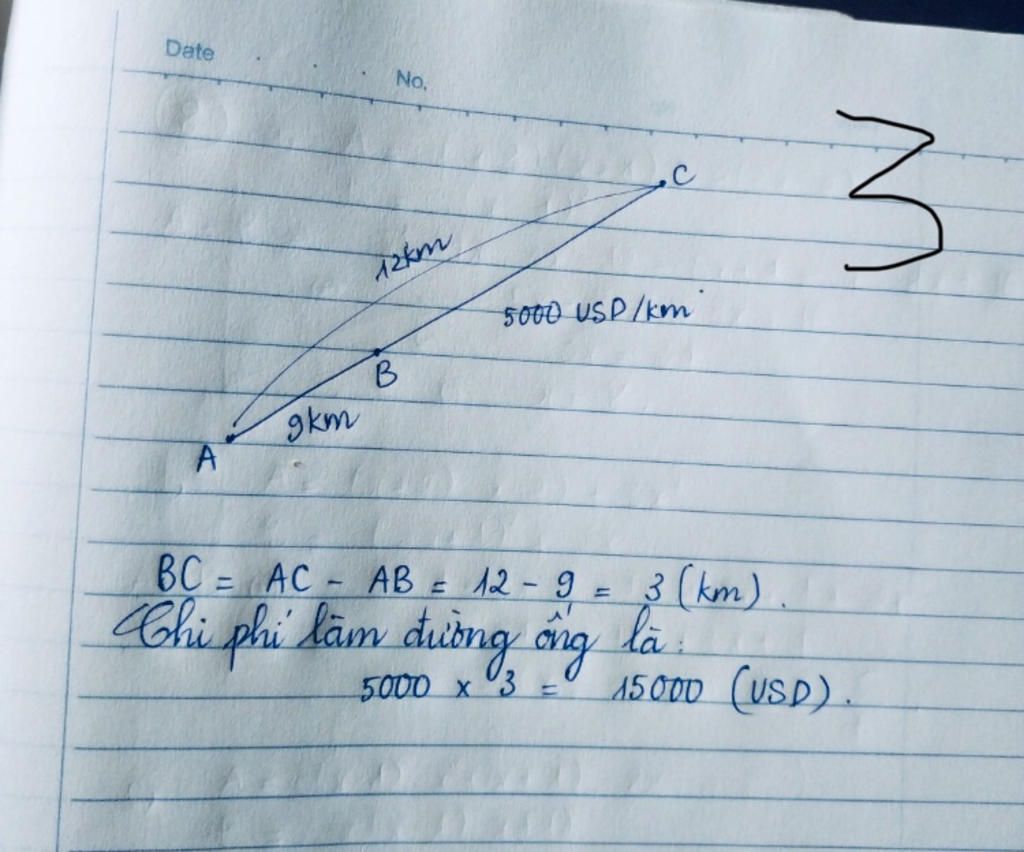 Date
No.
3
C
12km
5000 USD/km
B
9km
A
BC = AC - AB = 12 - 9 = 3 (km).
Chi phí làm đường ống là:
5000 x 3 = 15000 (USD).